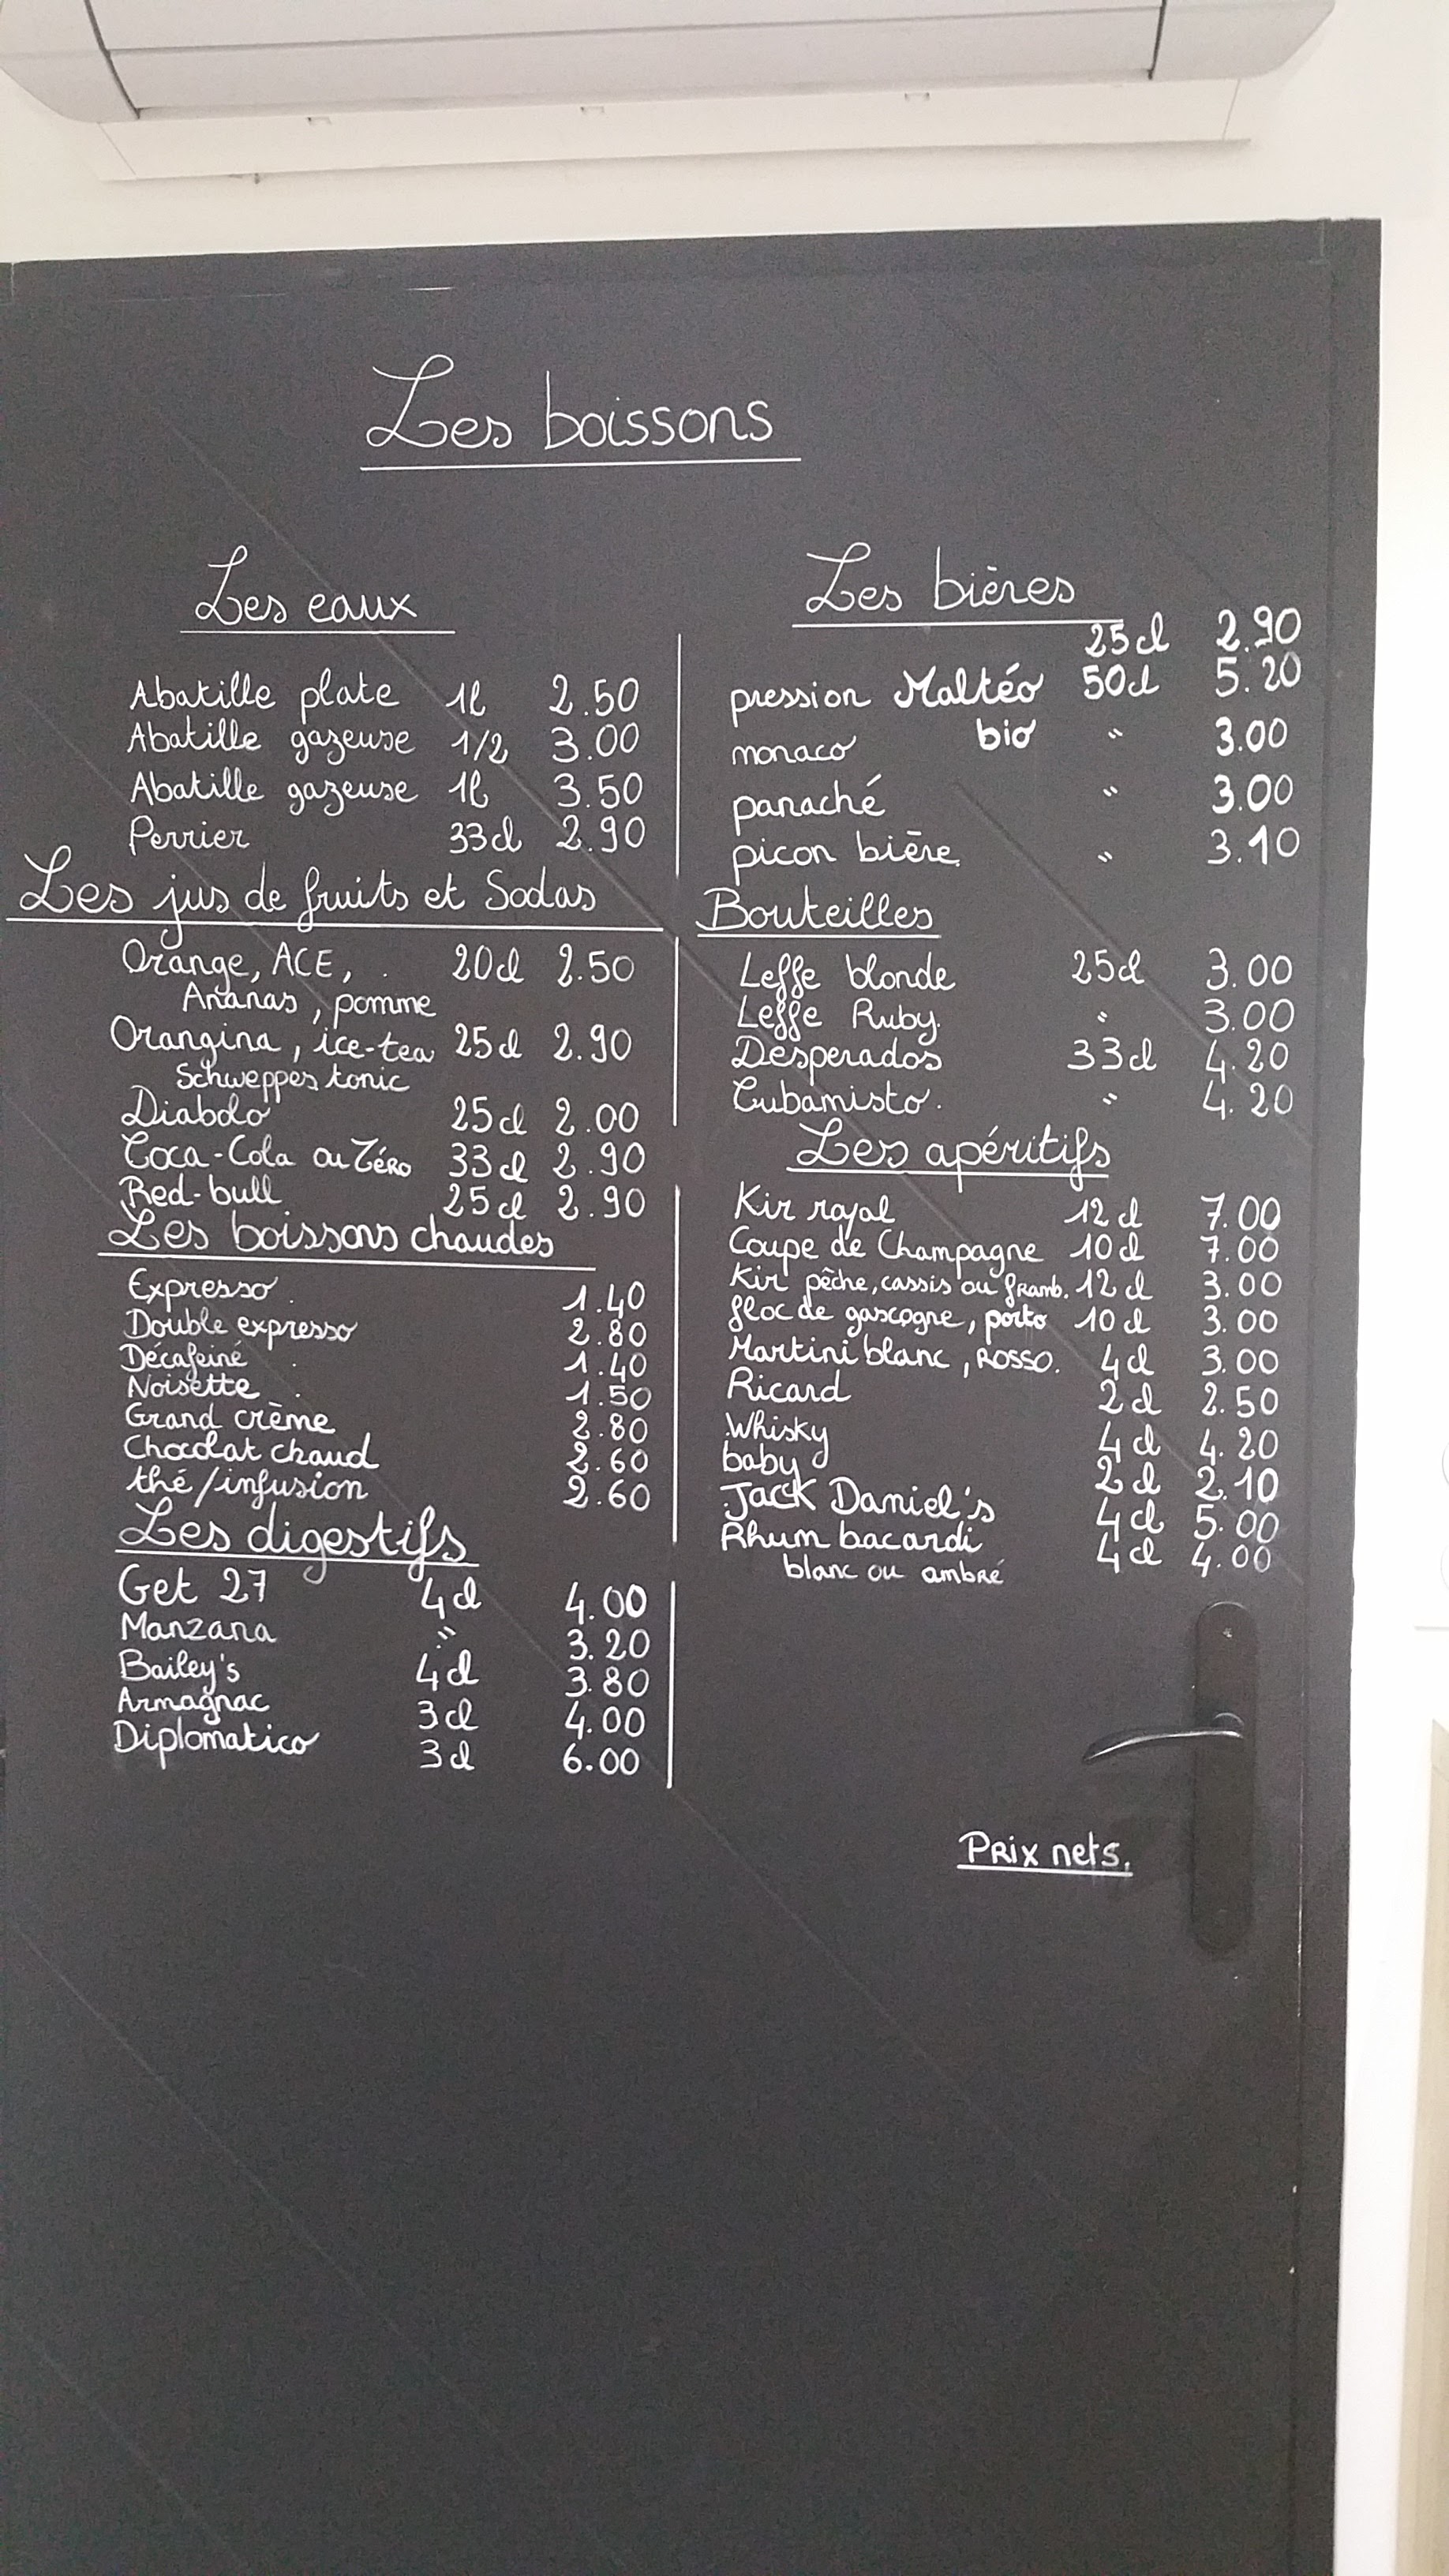 Les boissons
Les eaux
Abatille plate 1l 2.50
Abatille gazeuse 1/2 3.00
Abatille gazeuse 1l 3.50
Perrier 33cl 2.90
Les jus de fruits et Sodas
Orange, ACE, . 20cl 2.50
Ananas, pomme
Orangina, ice-tea 25cl 2.90
Schweppes tonic
Diabolo 25cl 2.00
Coca-Cola ou Zéro 33cl 2.90
Red-bull 25cl 2.90
Les boissons chaudes
Expresso 1.40
Double expresso 2.80
Décafeiné 1.40
Noisette 1.50
Grand crème 2.80
Chocolat chaud 2.60
thé/infusion 2.60
Les digestifs
Get 27 4cl 4.00
Manzana " 3.20
Bailey's 4cl 3.80
Armagnac 3cl 4.00
Diplomatico 3cl 6.00
Les bières
25cl 2.90
pression Maltéo 50cl 5.20
bio
monaco " 3.00
panaché " 3.00
picon bière " 3.10
Bouteilles
Leffe blonde 25cl 3.00
Leffe Ruby. " 3.00
Desperados 33cl 4.20
Cubamisto. " 4.20
Les apéritifs
Kir royal 12cl 7.00
Coupe de Champagne 10cl 7.00
Kir pêche, cassis ou framb. 12cl 3.00
floc de gascogne, porto 10cl 3.00
Martini blanc, Rosso. 4cl 3.00
Ricard 2cl 2.50
Whisky 4cl 4.20
baby 2cl 2.10
Jack Daniel's 4cl 5.00
Rhum bacardi 4cl 4.00
blanc ou ambré
Prix nets.